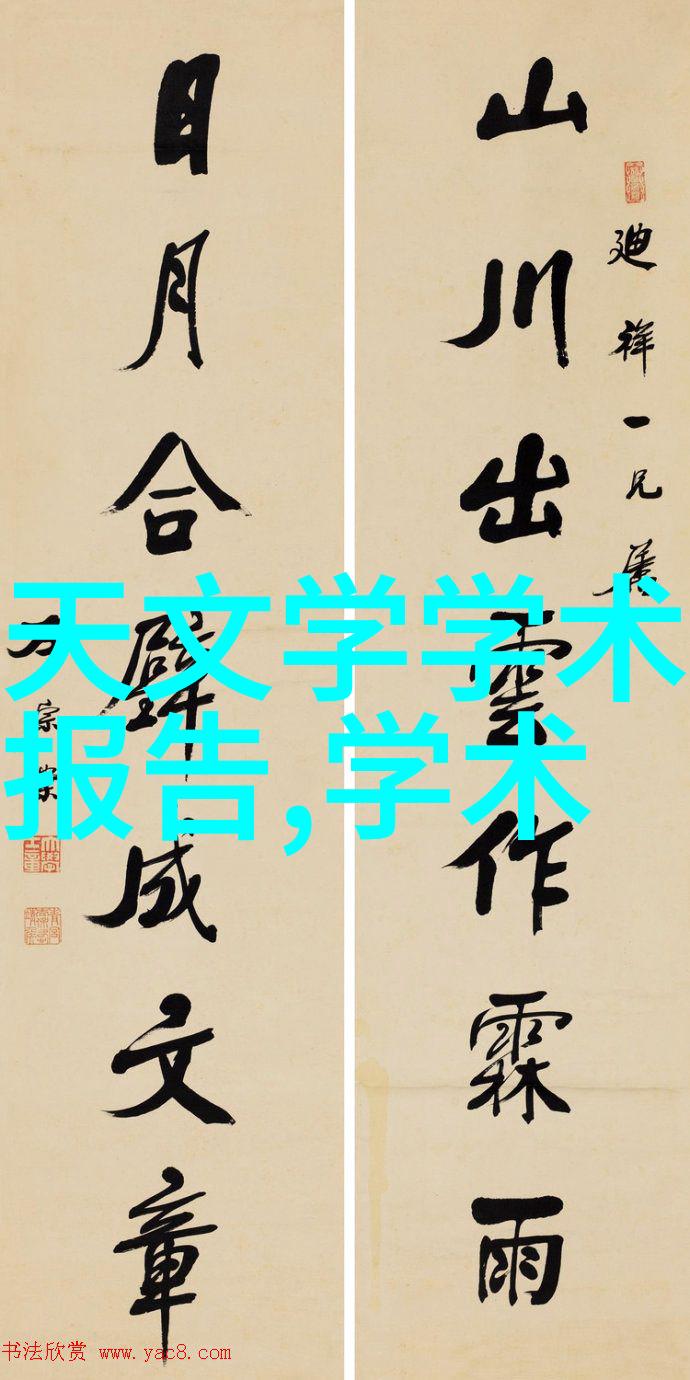 山川出雲作霖雨
日月合璧成文章
廸祥一兄屬
万崇
天文学学术
报告,学术
书法欣赏 www.yac8.com